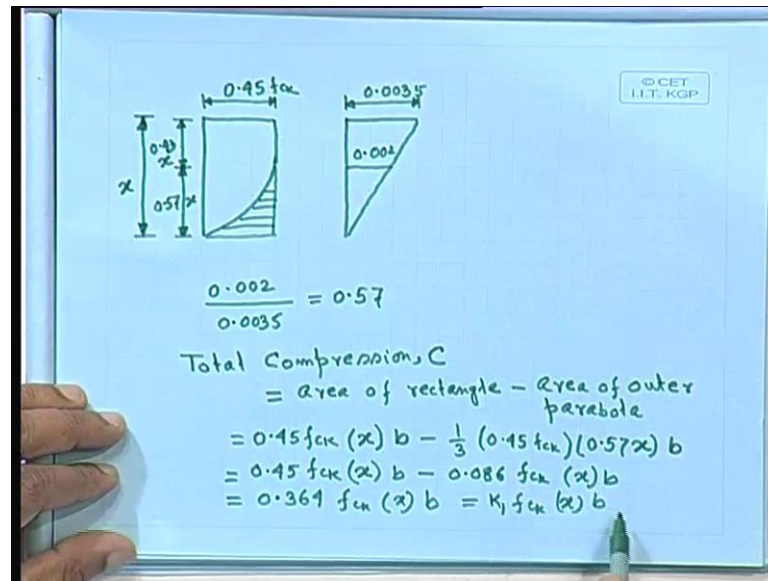 0.45 fck
0.0035
© CET
I.I.T. KGP
0.43
x
0.002
x
0.57 x
0.002
0.0035
= 0.57
Total Compression, C
= area of rectangle - area of outer
parabola
= 0.45 fck (x) b - 1/3 (0.45 fck)(0.57x) b
= 0.45 fck (x) b - 0.086 fck (x) b
= 0.364 fck (x) b = K₁ fck (x) b